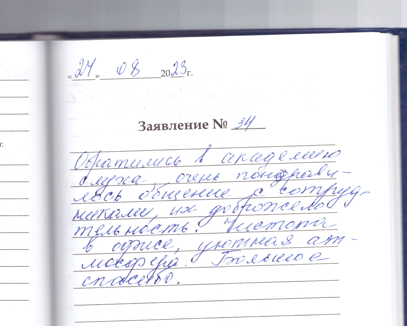 "24" 08 2023г.
Заявление № 34
Обратились в академию
слуха, очень понрави-
лось общение с сотруд-
никами, их доброжела-
тельность. Чистота
в офисе, уютная ат-
мосфера. Большое
спасибо.